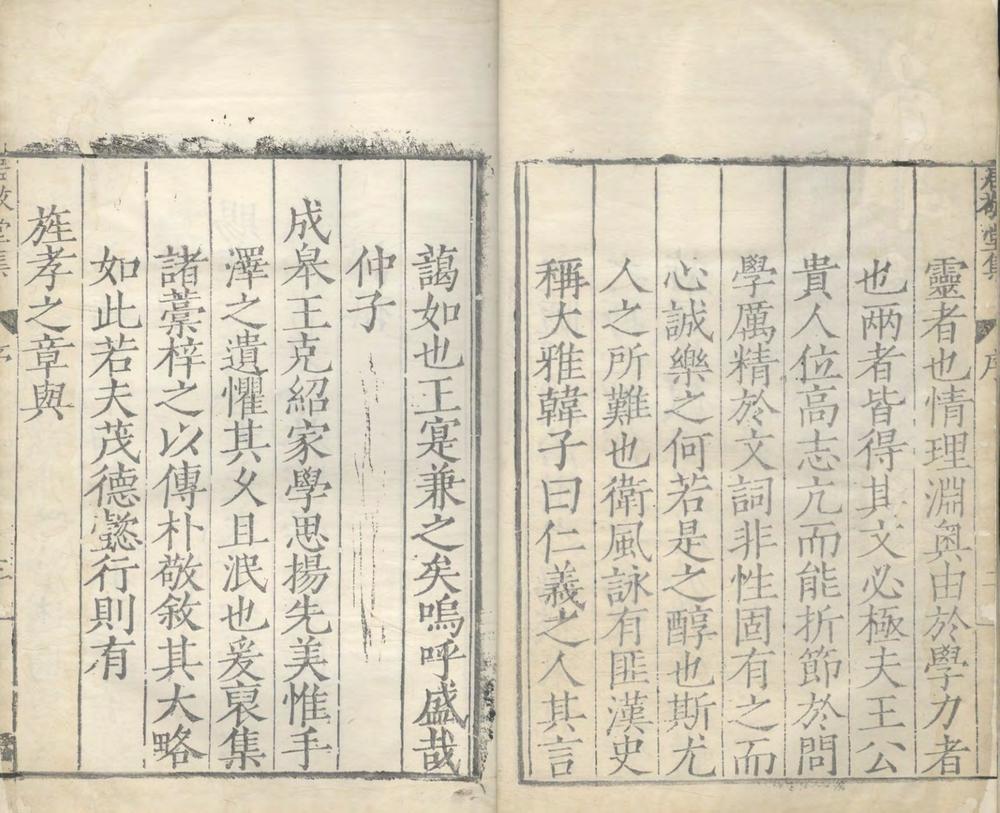 君敬堂集 序
靈者也情理淵奥由於學力者
也兩者皆得其文必極夫王公
貴人位高志亢而能折節於問
學厲精於文詞非性固有之而
心誠樂之何若是之醇也斯尤
人之所難也衛風詠有匪漢史
稱大雅韓子曰仁義之人其言
藹如也王寔兼之矣嗚呼盛哉
仲子
成皋王克紹家學思揚先美惟手
澤之遺懼其久且泯也爰裒集
諸藁梓之以傳朴敬敘其大略
如此若夫茂德懿行則有
旌孝之章與
敬堂集 序